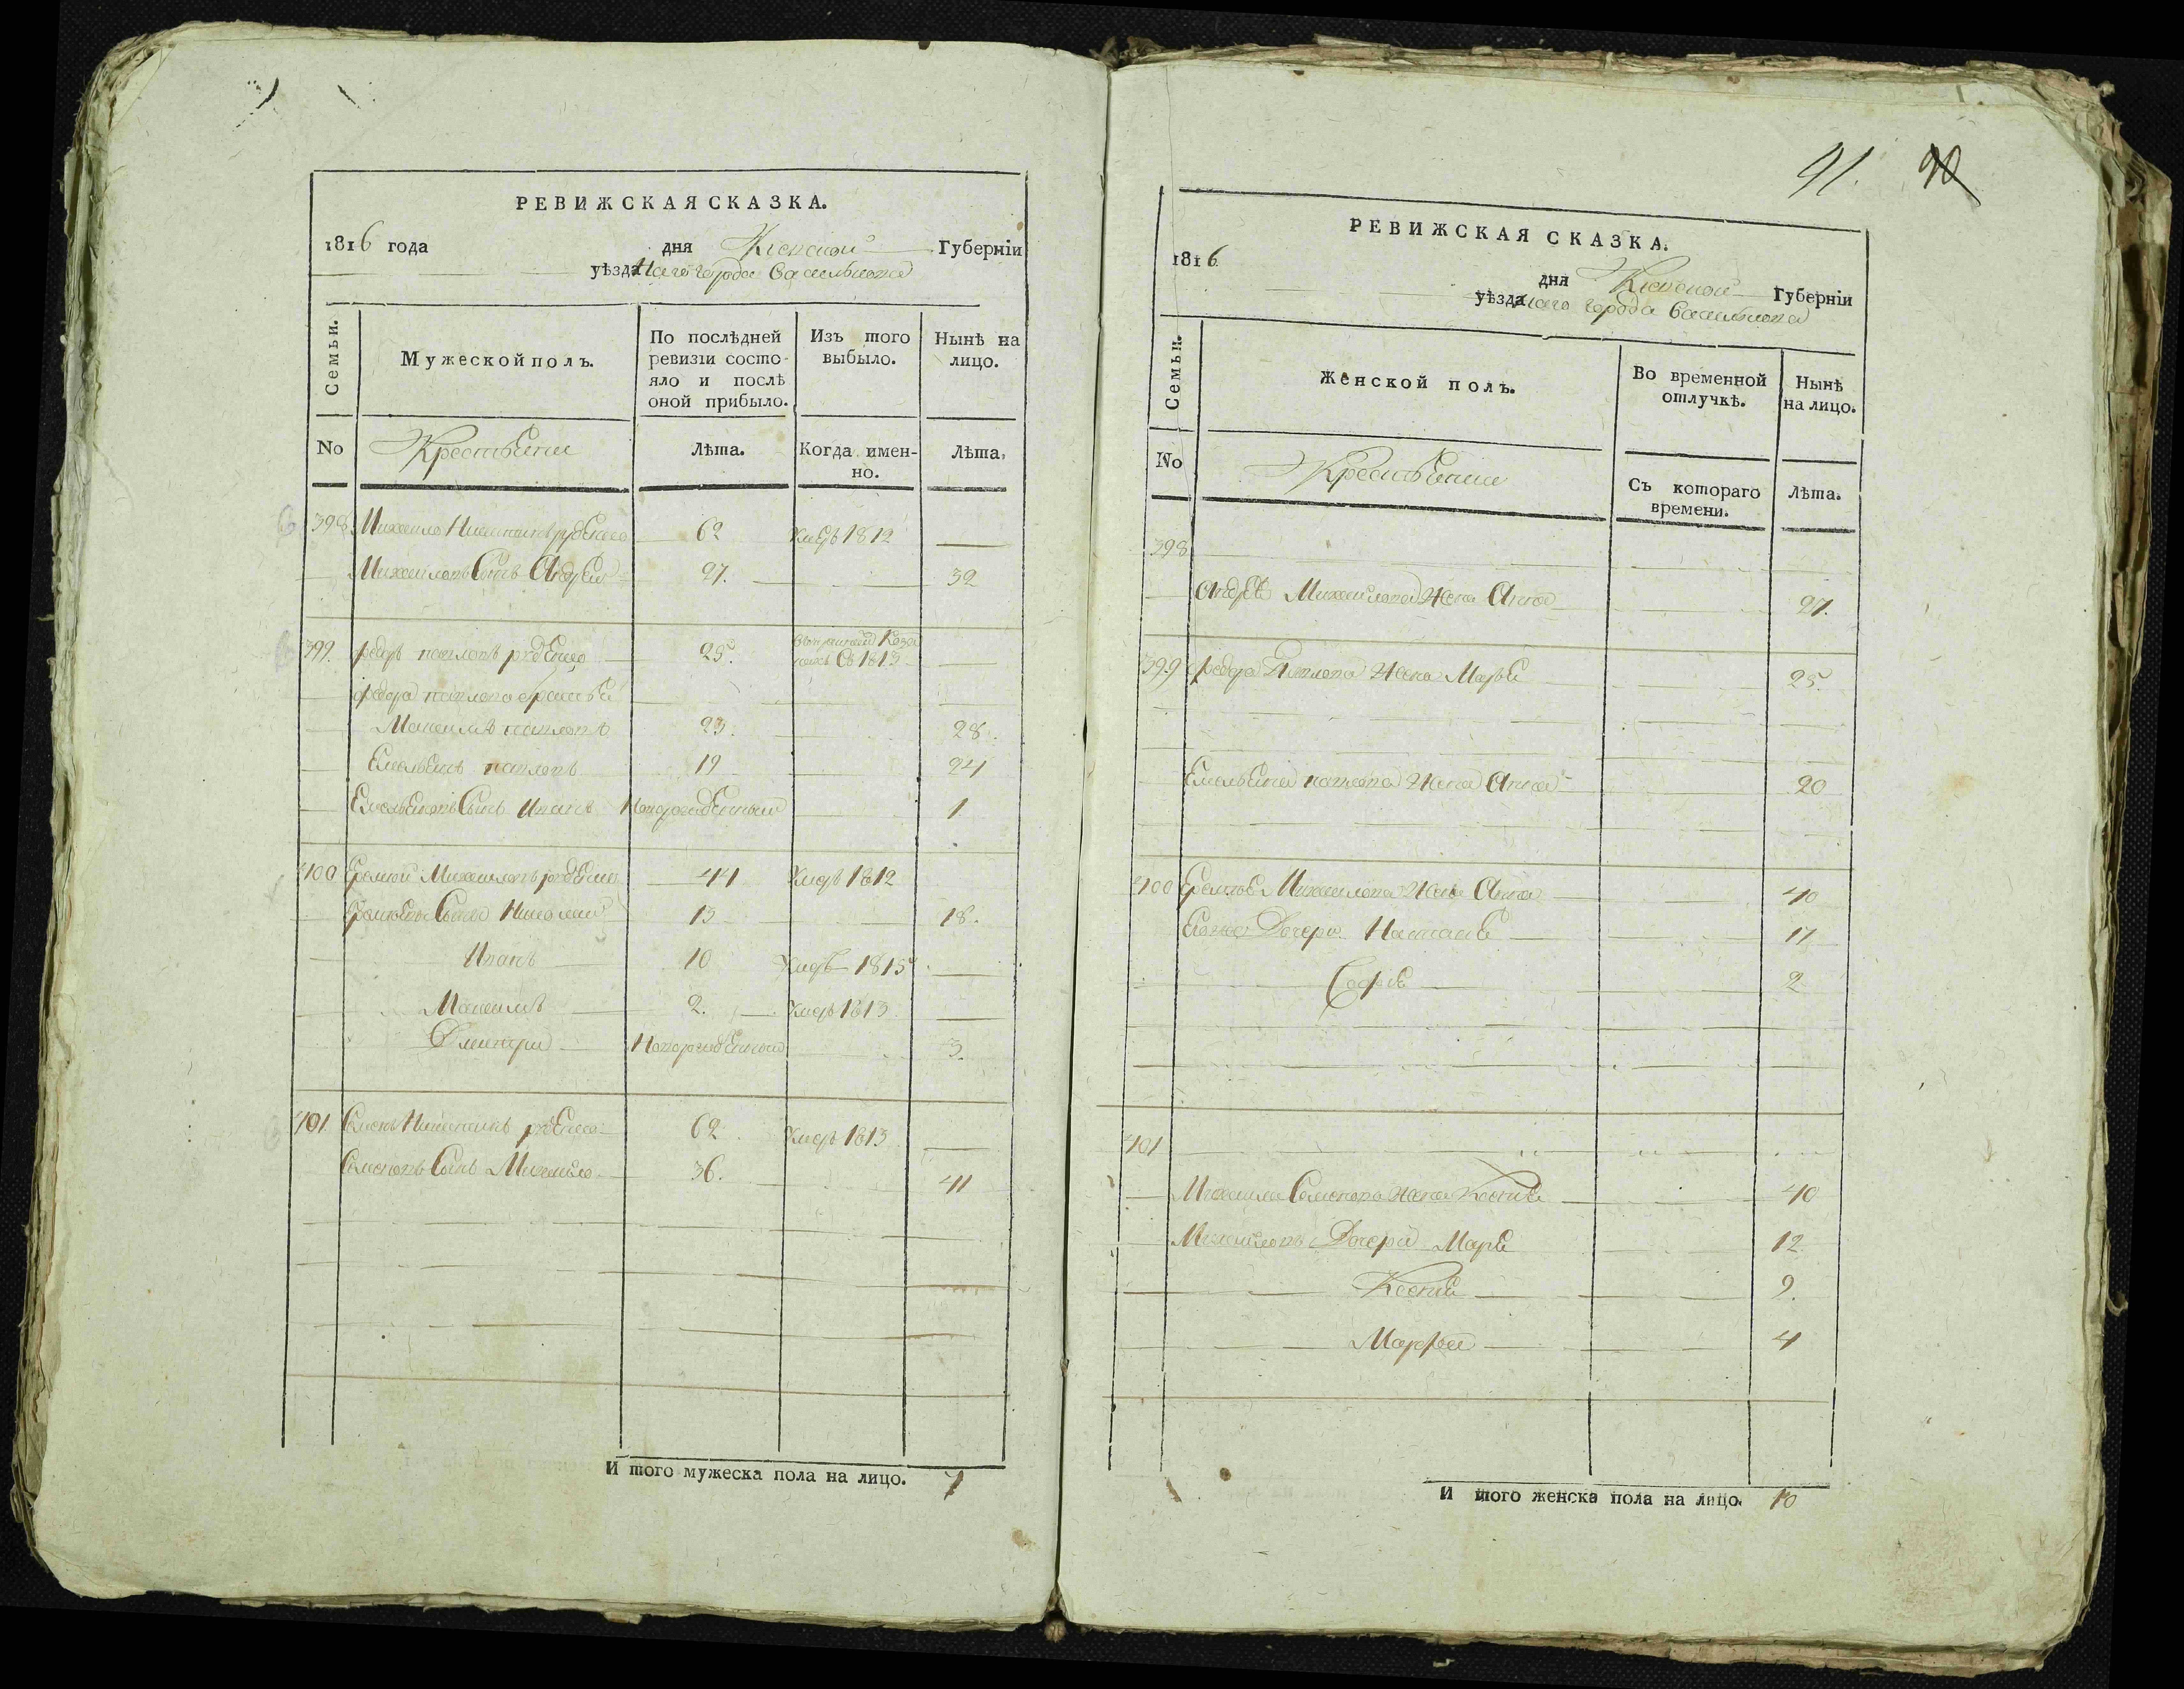 РЕВИЖСКАЯ СКАЗКА.
1816 года дня Киевской Губернїи
уѣзднаго города Василькова
Семьи. Мужеской полъ. По послѣдней ревизїи состояло и послѣ оной прибыло. Изъ того выбыло. Нынѣ на лицо.
No Крестьяни Лѣта. Когда именно. Лѣта.
398 Михаило Никитинъ 62 умеръ 1812
Михаиловъ Сынъ Андрей 27. 32
399. федоръ павловъ 25. 1813
федора павлова братьи
Максимъ павловъ 23. 28.
Емельянъ павловъ 19 24
Емельяновъ Сынъ Иванъ Новорожденный 1
400 Михаиловъ 44 умеръ 1812
Сыны Николай 13 18.
Иванъ 10 умеръ 1815
Максимъ 2. умеръ 1813
Дмитри Новорожденный 3.
401 Никитинъ 62 умеръ 1813
Семеновъ Сынъ Михаило 36. 41
И того мужеска пола на лицо. 7
91. 90
РЕВИЖСКАЯ СКАЗКА.
1816 дня Киевской Губернїи
уѣзднаго города Василькова
Семьи. Женской полъ. Во временной отлучкѣ. Нынѣ на лицо.
No Крестьяни Съ котораго времени. Лѣта.
398
Андрея Михаилова Жена Анна 27.
399 федора Павлова Жена Марья 25.
Емельяна павлова Жена Анна 20
400 Михаилова Жена Анна 40
Дочери Настася 11
Софья 2
401
Михаила Семенова Жена Ксения 40
Михаиловы Дочери Марья 12
Ксения 9.
Марфа 4
И того женска пола на лицо. 10